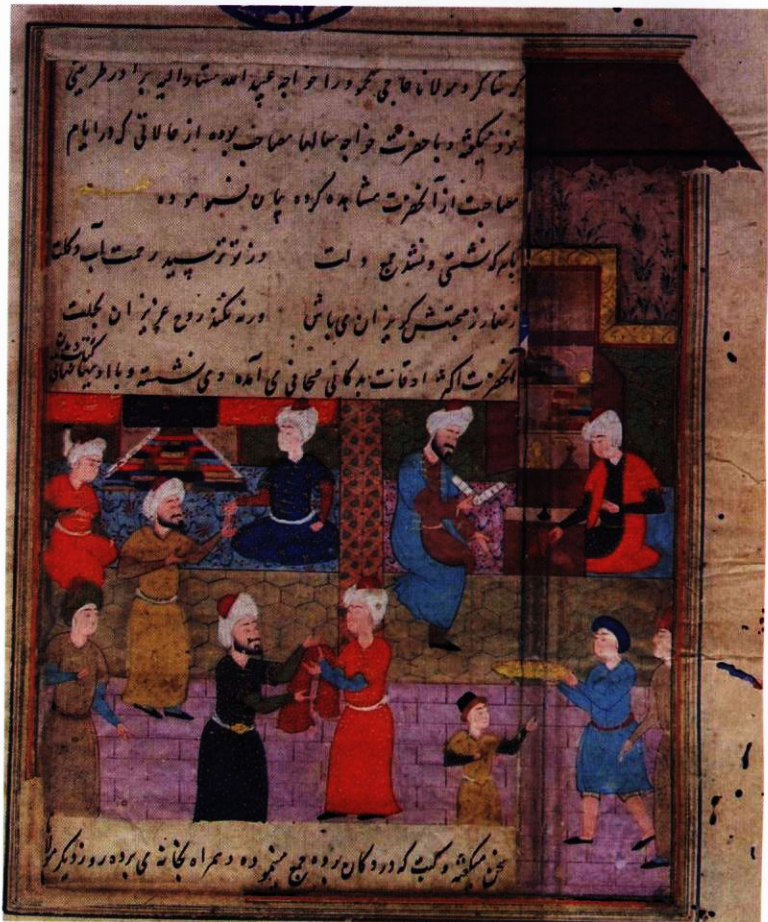 شاگرد مولانا حاجی را خواجه عبید الله مشارالیه برادر طریقی
خود میگفته و با حضرت خواجه سالها مصاحب بوده از حالاتی که در ایام
مصاحبت از آنحضرت مشاهده کرده بیان
با هر که نشستی و نشد جمع دلت وز تو نرمید زحمت آب و گلت
زنهار ز صحبتش گریزان می باش ورنه نکند روح عزیزان بحلت
آنحضرت اکثر اوقات بدکانی صحافی می آمده و می نشسته و با او
سخن میگفته و کتب که در دکان بوده جمع مینموده و همراه بخانه می برده روز دیگر